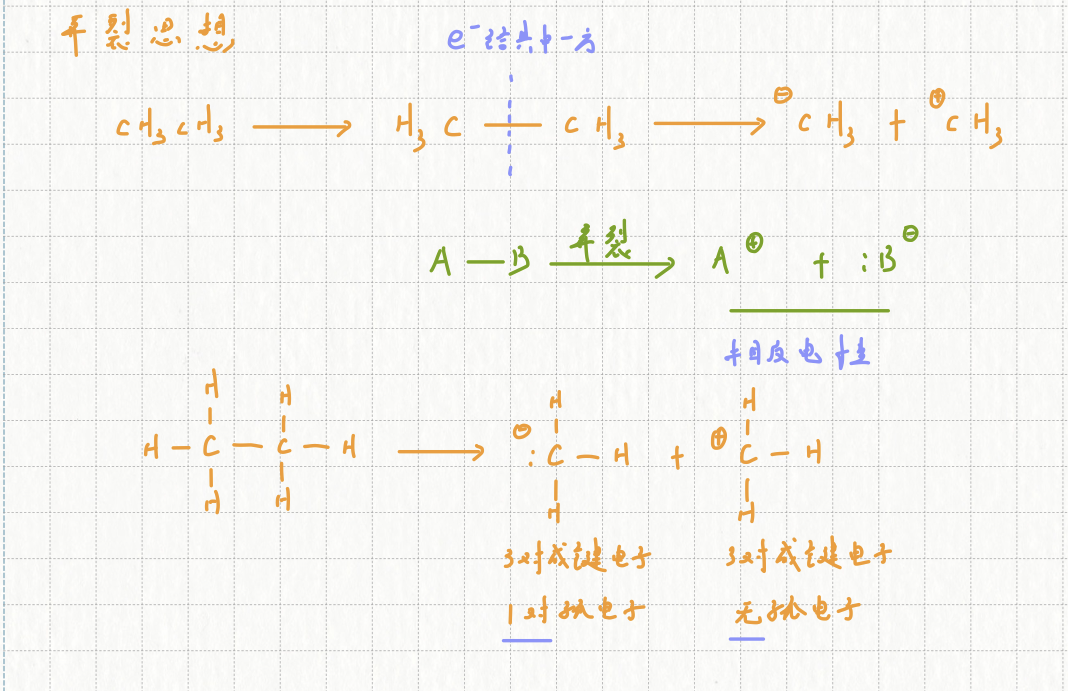 异裂思想
e⁻给其中一方
CH₃CH₃ → H₃C—CH₃ → ⊖CH₃ + ⊕CH₃
A—B 异裂→ A⊕ + :B⊖
相反电性
H H H H
H—C—C—H → ⊖:C—H + ⊕C—H
H H H H
3对成键电子 3对成键电子
1对孤电子 无孤电子